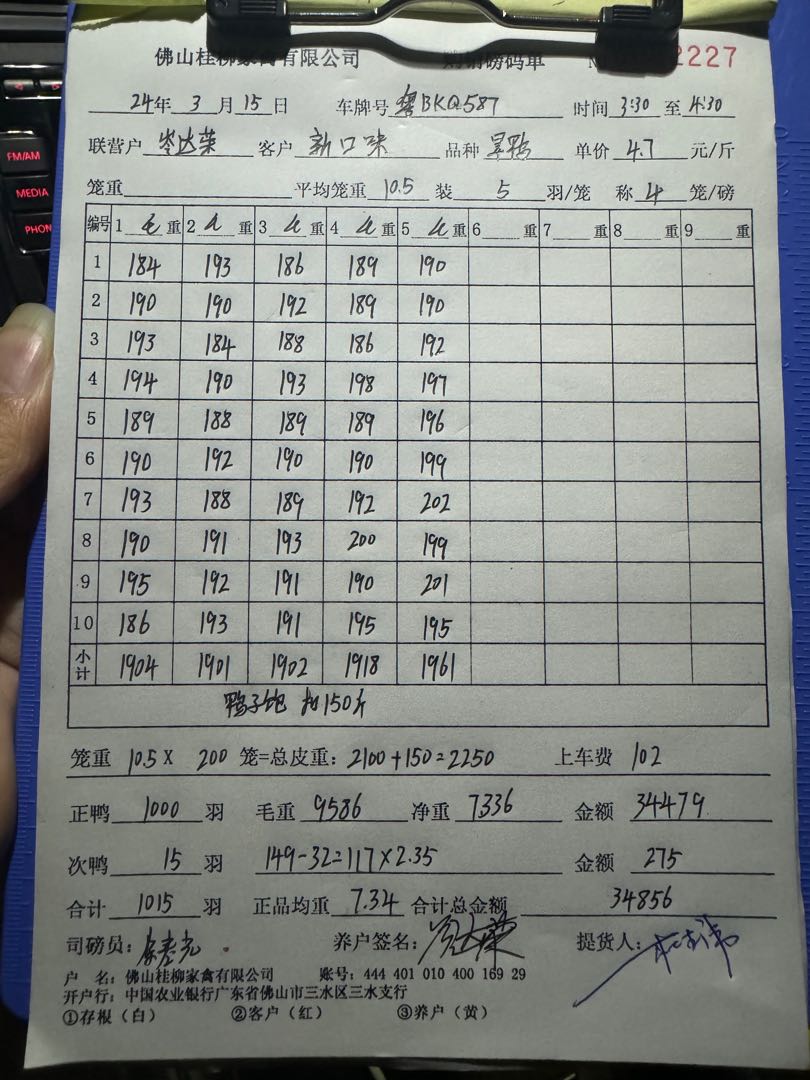 佛山桂柳家禽有限公司 购销磅码单 2227
24年 3月15日 车牌号 粤BKQ587 时间 3:30 至 4:30
联营户 岑达荣 客户 新口味 品种 旱鸭 单价 4.7 元/斤
笼重 平均笼重 10.5 装 5 羽/笼 称 4 笼/磅
编号 1 毛 重 2 〃 重 3 〃 重 4 〃 重 5 〃 重 6 重 7 重 8 重 9 重
1 184 193 186 189 190
2 190 190 192 189 190
3 193 184 188 186 192
4 194 190 193 198 197
5 189 188 189 189 196
6 190 192 190 190 199
7 193 188 189 192 202
8 190 191 193 200 199
9 195 192 191 190 201
10 186 193 191 195 195
小计 1904 1901 1902 1918 1961
鸭子饱 扣150斤
笼重 10.5 X 200 笼=总皮重: 2100+150=2250 上车费 102
正鸭 1000 羽 毛重 9586 净重 7336 金额 34479
次鸭 15 羽 149-32=117×2.35 金额 275
合计 1015 羽 正品均重 7.34 合计总金额 34856
司磅员: 养户签名: 岑达荣 提货人:
户 名: 佛山桂柳家禽有限公司 账号: 444 401 010 400 169 29
开户行: 中国农业银行广东省佛山市三水区三水支行
①存根（白） ②客户（红） ③养户（黄）
FM/AM
MEDIA
PHON